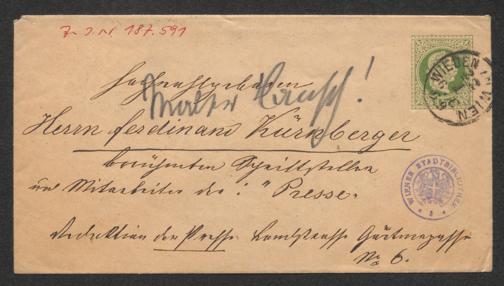 Z. J. N. 187.591
Hochwohlgeboren
Herrn Ferdinand Kürnberger
berühmten Schriftsteller
und Mitarbeiter der "Presse"
Redaktion der Presse. Landstrasse Gärtnergasse
No 6.
WIEDEN WIEN
WIENER STADTBIBLIOTHEK